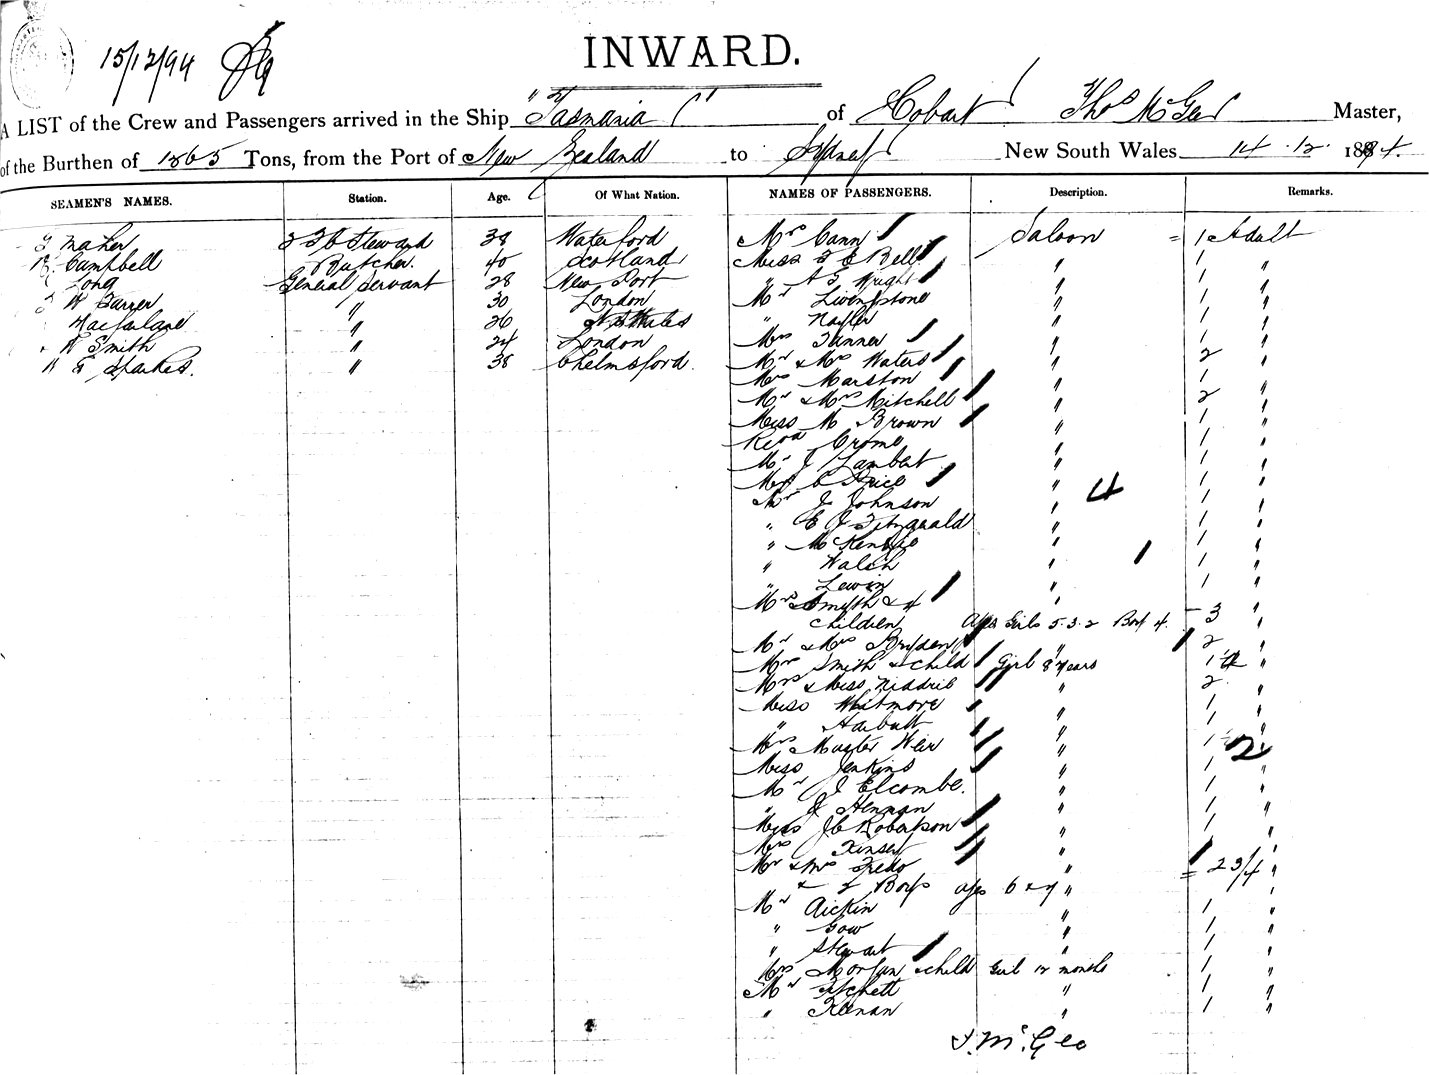 15/12/94
INWARD.
A LIST of the Crew and Passengers arrived in the Ship "Tasmania" of Hobart Thos McGee Master,
of the Burthen of 1865 Tons, from the Port of New Zealand to Sydney New South Wales 14.12.1894.
SEAMEN'S NAMES. Station. Age. Of What Nation. NAMES OF PASSENGERS. Description. Remarks.
Maher Steward 38 Waterford Mrs Cann Saloon = 1 Adult
Campbell Butcher. 40 Scotland Miss Bell " 1 "
Long General Servant 28 New Port " Wright " 1 "
W Turner " 30 London Mr Livingstone " 1 "
Macfarlane " 26 N S Wales " Naylor " 1 "
W Smith " 24 London Mrs Tunner " 1 "
Sparkes. " 38 Chelmsford. Mr & Mrs Waters " 2
Mrs Marston " 1 "
Mr & Mrs Mitchell " 2 "
Miss M Brown " 1 "
Revd Crome " 1 "
Mr J Lambert " 1 "
C Price " 1 "
Mr J Johnson " 4 1 "
" E J Fitzgerald " 1 "
" McKenzie " 1 "
" Walsh " 1 "
" Lewin " 1 "
Mrs Smyth & 4
children Ages Girls 5.3.2 Boy 4. - 3 "
Mr & Mrs Bryden " 2 "
Mrs Smith & child Girl 8 years 1 "
Mrs & Miss Niddrie " 2 "
Miss Whitmore " 1 "
" Harbutt " 1 "
Mrs Master Weir " 1 2 "
Miss Jenkins " 1 "
Mr J Elcombe. " 1 "
" J Henman " 1 "
Miss Robertson " 1 "
Mrs Kinsey "
Mr & Mrs " = 2 3/4 "
& 2 Boys ages 6 & 7 "
Mr Aickin " 1 "
" Gow " 1 "
" Stewart " 1 "
Mrs Morgan & child Girl 12 months 1 "
Mr Fitchett " 1 "
" Keenan " 1 "
T. McGee